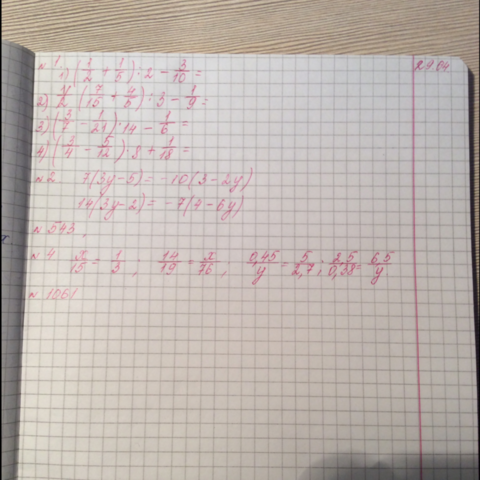 29.04
№1
1) (3/2 + 1/5) : 2 - 3/10 =
2) (7/15 + 4/5) : 3 - 1/9 =
3) (3/7 - 1/21) · 14 - 1/6 =
4) (3/4 - 5/12) · 8 + 1/18 =
№2 7(3y-5) = -10(3-2y)
14(3y-2) = -7(4-6y)
№543,
№4 x/15 = 1/3, 14/19 = x/76; 0,45/y = 5/2,7; 2,5/0,38 = 6,5/y
№1061